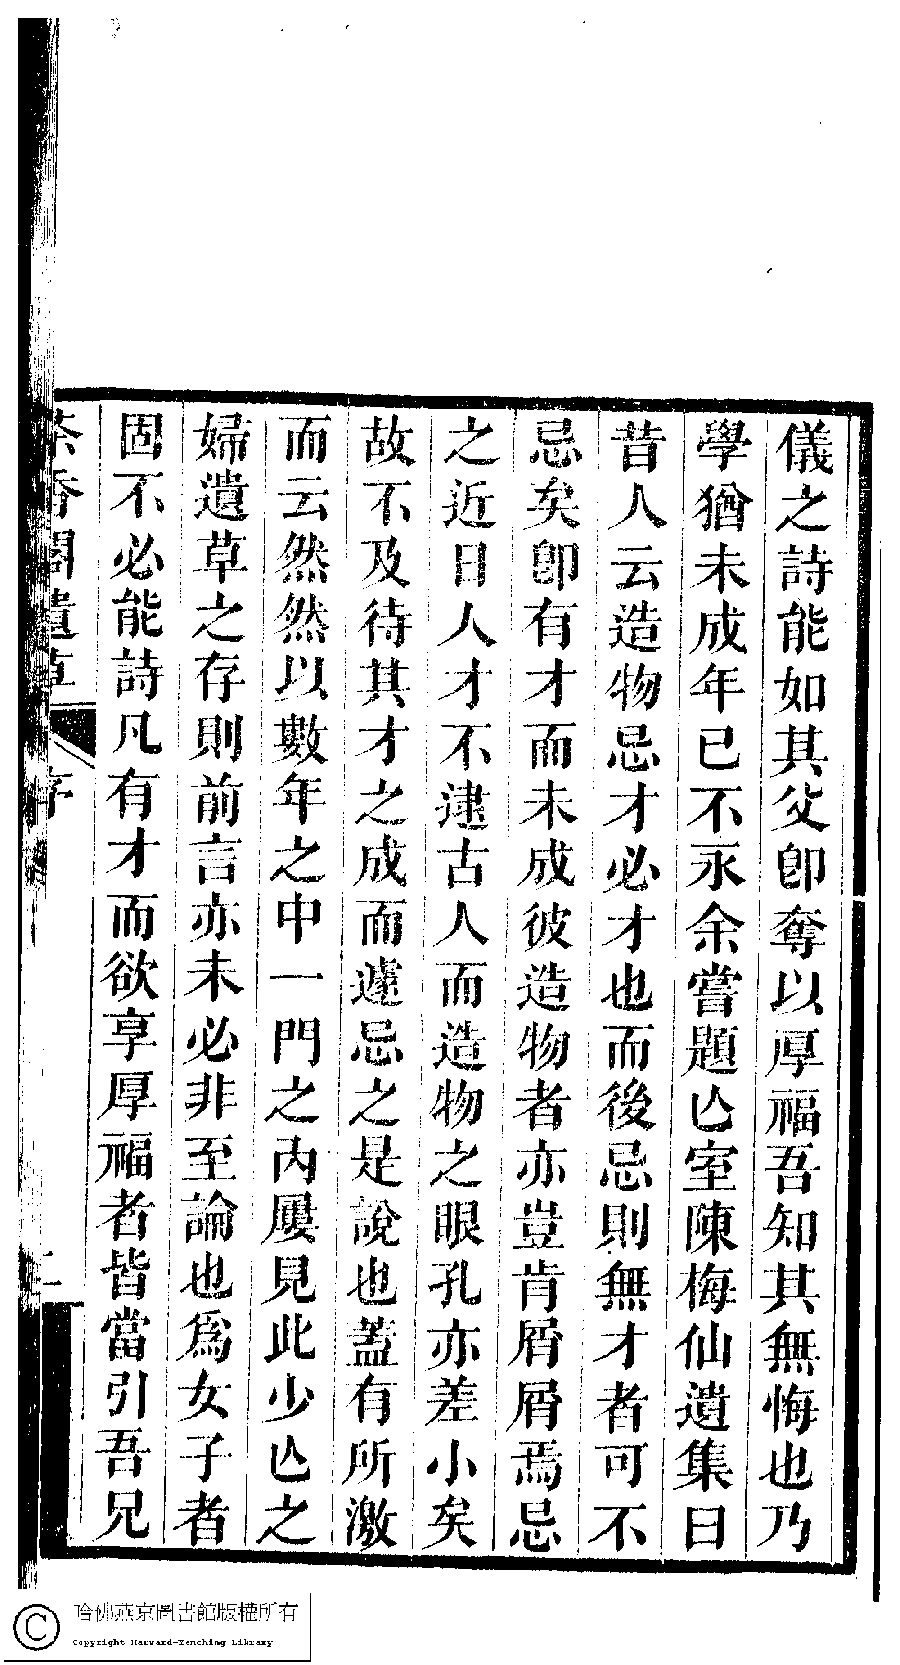 儀之詩能如其父卽奪以厚福吾知其無悔也乃
學猶未成年已不永余嘗題亾室陳梅仙遺集曰
昔人云造物忌才必才也而後忌則無才者可不
忌矣卽有才而未成彼造物者亦豈肯屑屑焉忌
之近日人才不逮古人而造物之眼孔亦差小矣
故不及待其才之成而遽忌之是說也蓋有所激
而云然然以數年之中一門之內屢見此少亾之
婦遺草之存則前言亦未必非至論也爲女子者
固不必能詩凡有才而欲享厚福者皆當引吾兄
茶香閣遺草
序
二
哈佛燕京圖書館版權所有
Copyright Harvard-Yenching Library